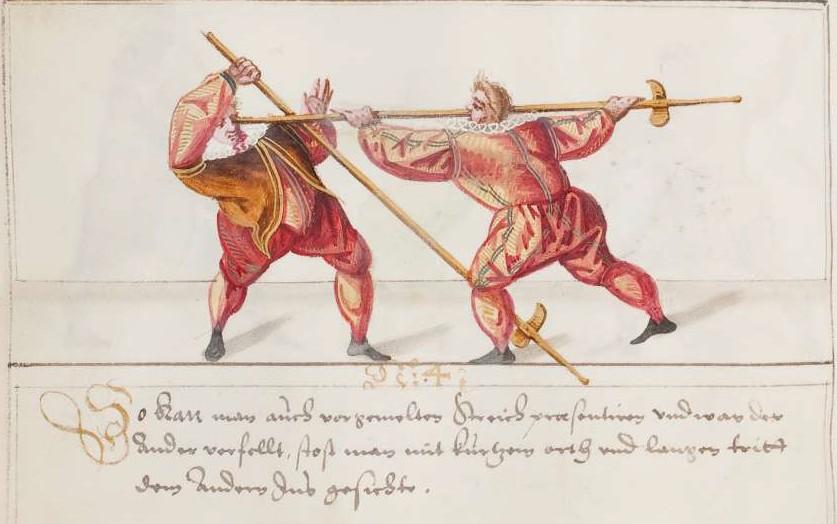 N: 4:
So Kan man auch vorgemelten Streich præsentiren vnd wan der
Ander verfellt, stost man mit kurtzem orth vnd langen tritt
dem Andern Ins gesichte.